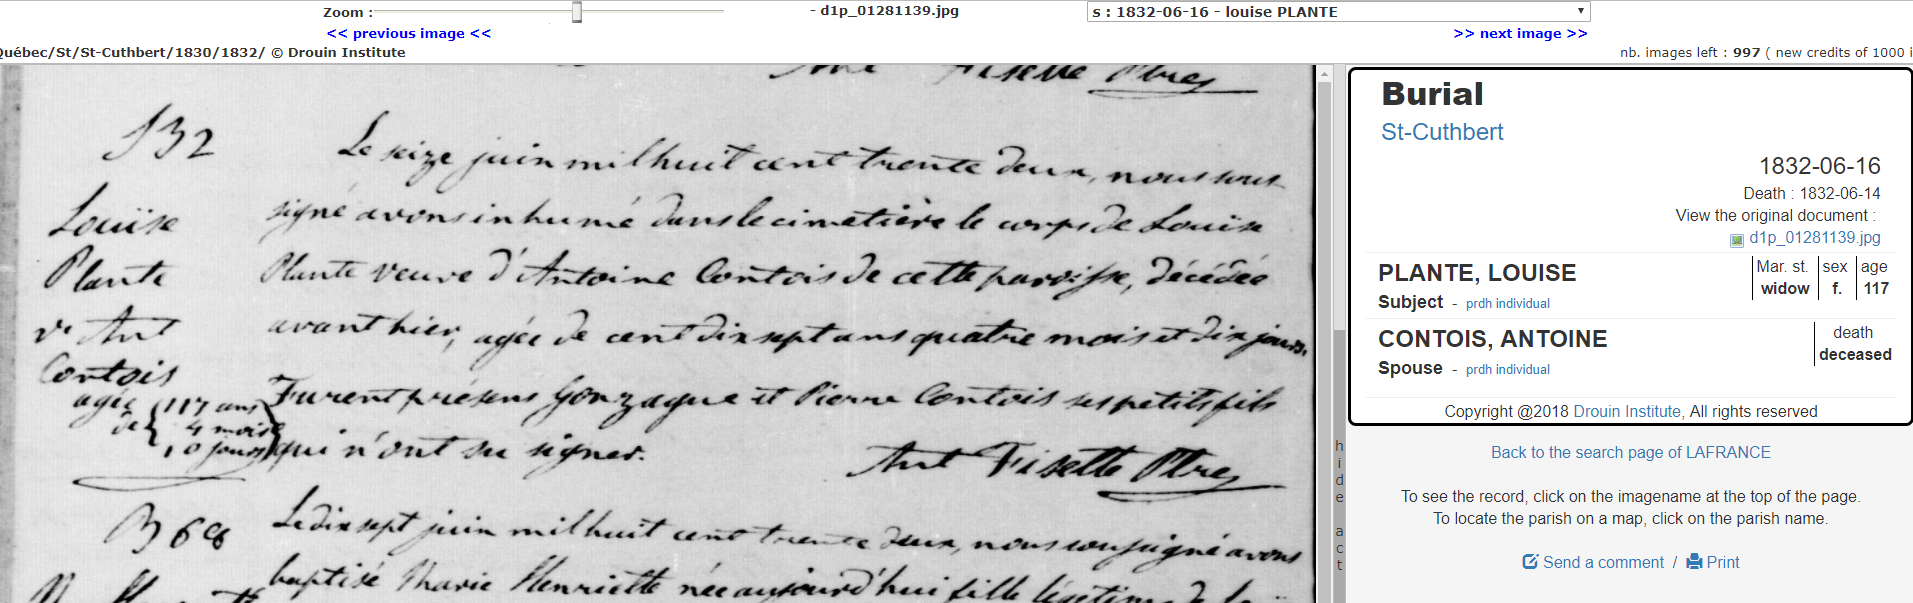 Zoom :
- d1p_01281139.jpg
s : 1832-06-16 - louise PLANTE
<< previous image <<
>> next image >>
Québec/St/St-Cuthbert/1830/1832/ © Drouin Institute
nb. images left : 997 ( new credits of 1000 i
Ant Fisette Ptre
S32
Louïse
Plante
ve Ant
Contois
agée
de
117 ans
4 mois
10 jours
Le seize juin mil huit cent trente deux, nous sous
signé avons inhumé dans le cimetière le corps de Louïse
Plante veuve d'Antoine Contois de cette paroisse, décédée
avant hier, agée de cent dix sept ans quatre mois et dix jours.
Furent présens Gonzague et Pierre Contois ses petits fils
qui n'ont su signer.
Ant Fisette Ptre
B 68
Le dix sept juin mil huit cent trente deux, nous soussigné avons
baptisé Marie Henriette née aujourd'hui fille légitime de
hide act
Burial
St-Cuthbert
1832-06-16
Death : 1832-06-14
View the original document :
d1p_01281139.jpg
PLANTE, LOUISE
Subject - prdh individual
Mar. st. sex age
widow f. 117
CONTOIS, ANTOINE
Spouse - prdh individual
death
deceased
Copyright @2018 Drouin Institute, All rights reserved
Back to the search page of LAFRANCE
To see the record, click on the imagename at the top of the page.
To locate the parish on a map, click on the parish name.
Send a comment / Print